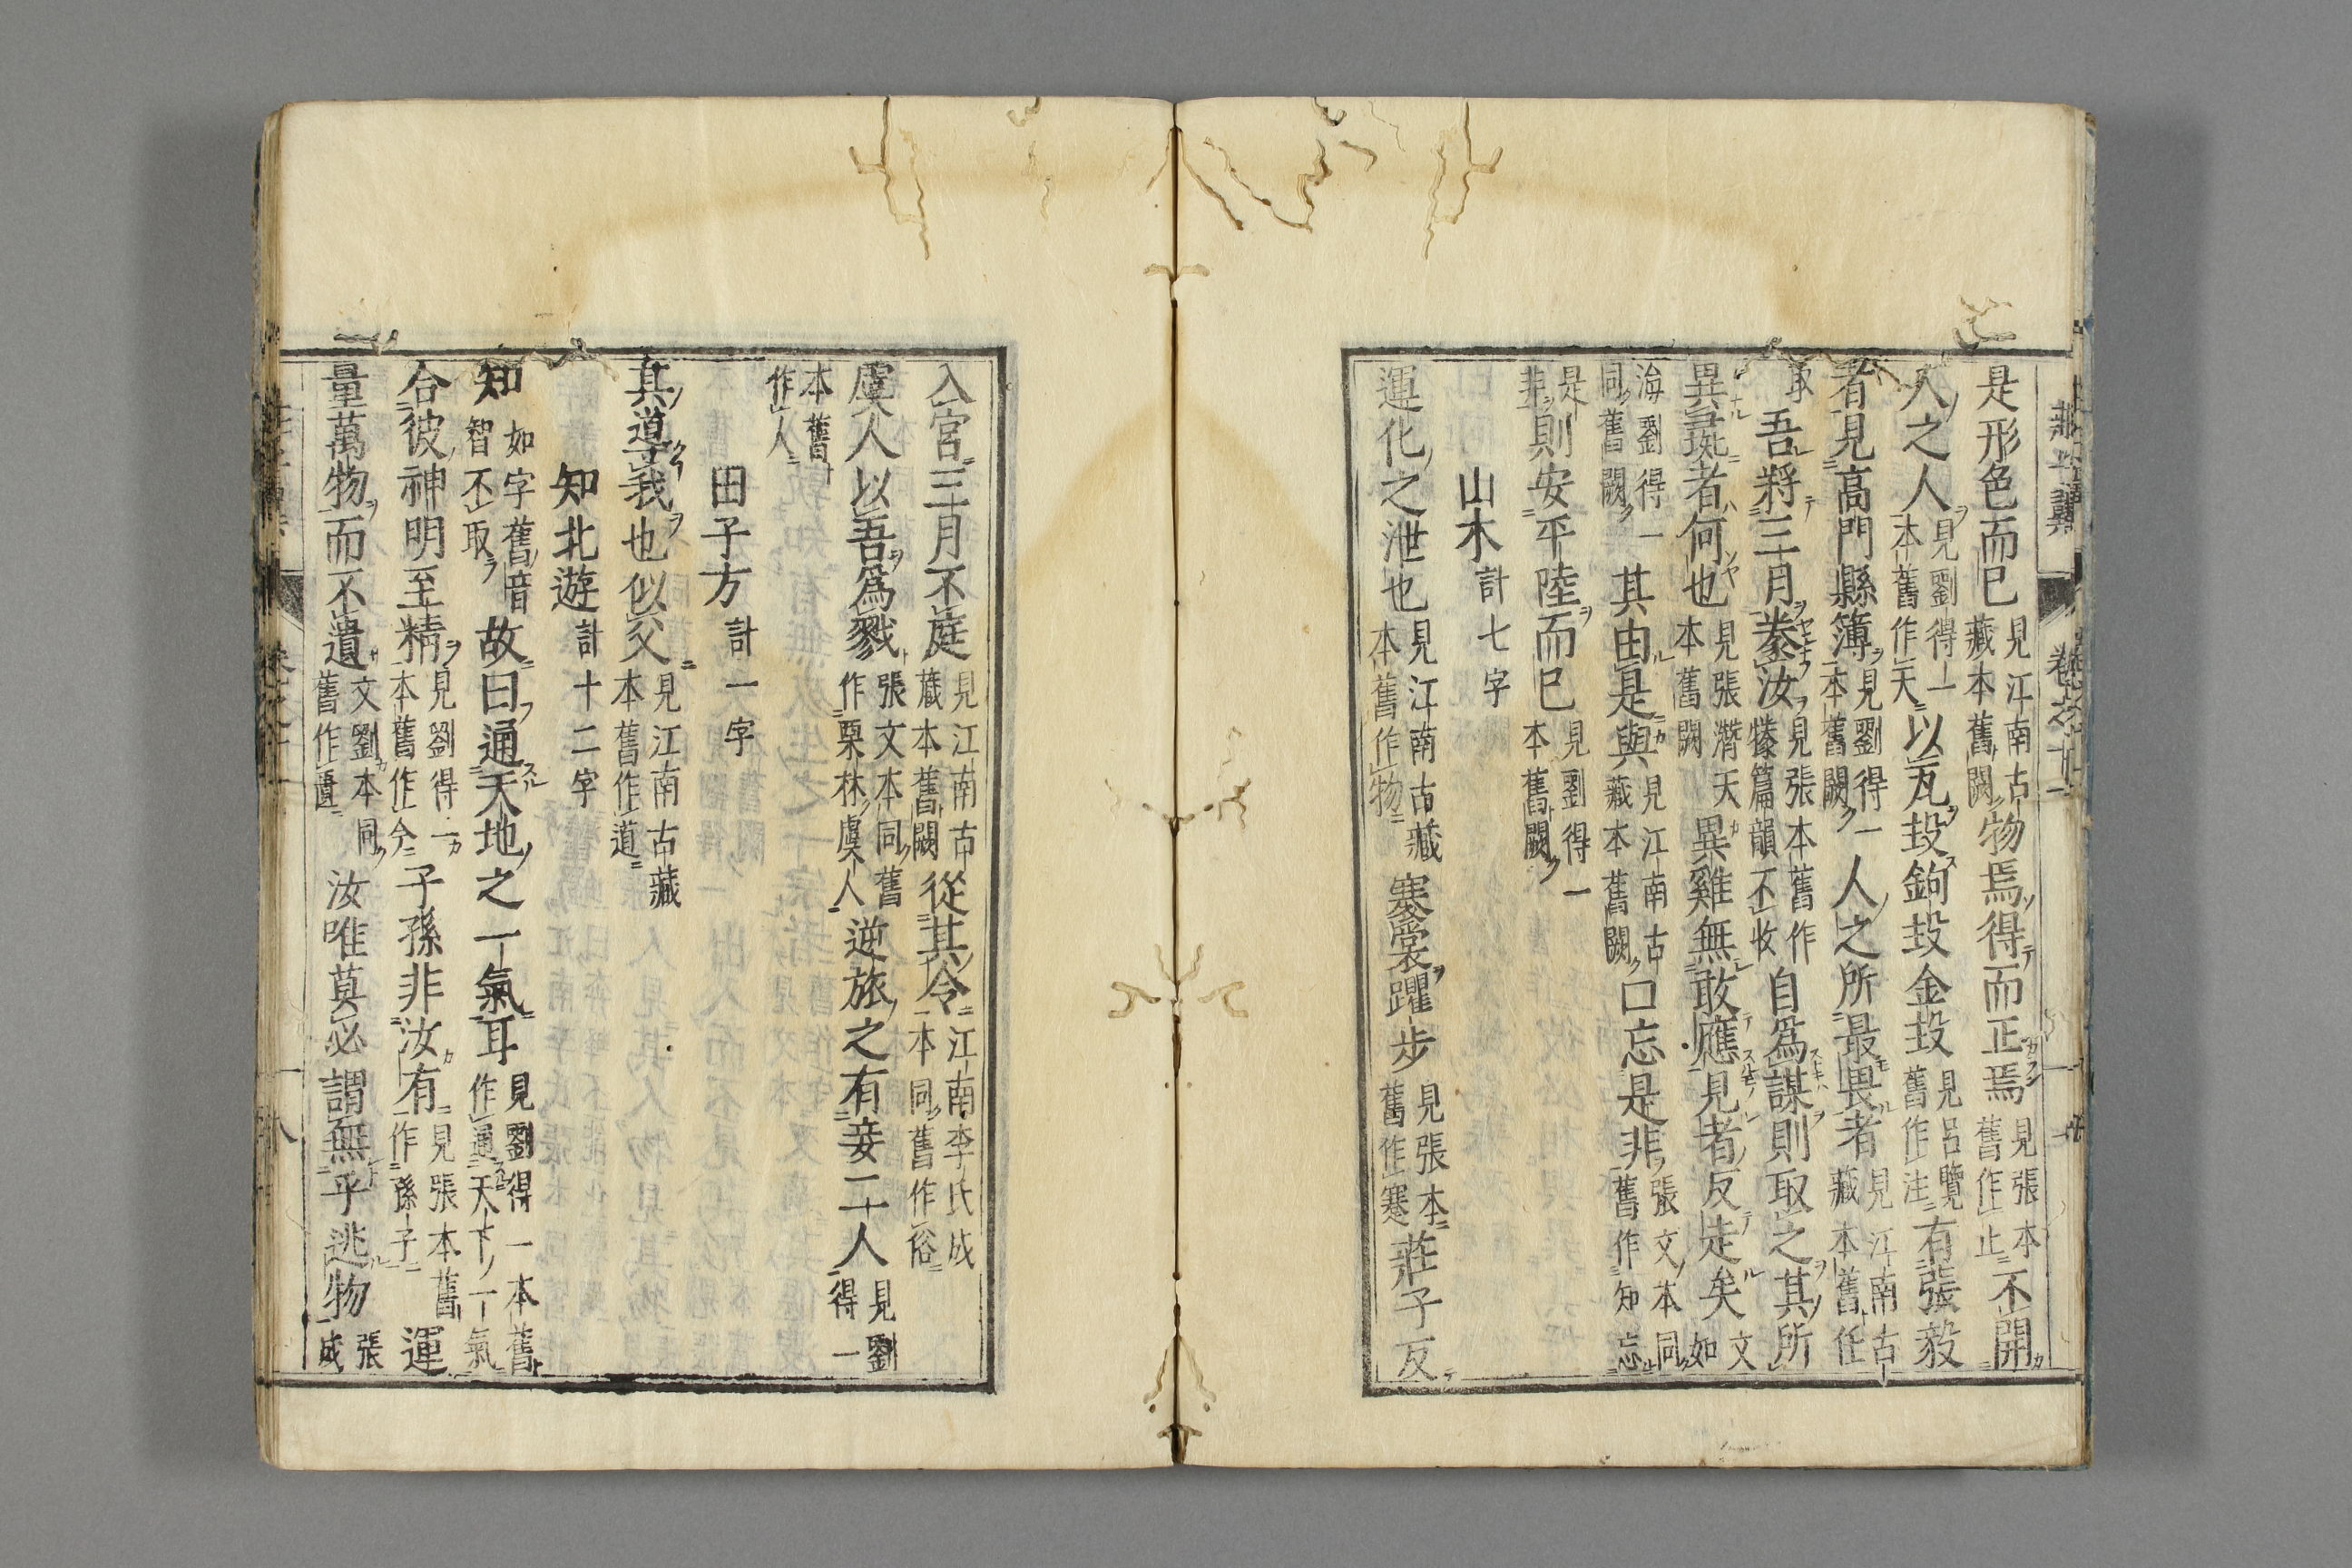 莊子翼 卷之十一
是形色而已見江南古藏本舊闕物焉得而正焉見張本舊作止不開
人之人見劉得一本舊作天以瓦投鉤投金投見呂覽舊作注有張毅
者見高門縣簿見劉得一本舊闕人之所最畏者見江南古藏本舊任
取吾將三月豢汝見張本舊作篇韻不收自爲謀則取之其所
異彘者何也見張潛天本舊闕異雞無敢應見者反走矣文如
海劉得一同舊闕其由是與見江南古藏本舊闕口忘是非張文本同舊作知忘
是非則安平陸而已見劉得一本舊闕
山木計七字
運化之泄也見江南古藏本舊作物褰裳躩步見張本舊作蹇莊子反
入宮三月不庭見江南古藏本舊闕從其令江南李氏成本同舊作俗
虞人以吾爲戮張文本同舊作栗林虞人逆旅之有妾二人見劉得一
本舊作人
田子方計一字
其導我也似父見江南古藏本舊作道
知北遊計十二字
知如字舊音智不取故曰通天地之一氣耳見劉得一本舊作通天下一氣
合彼神明至精見劉得一本舊作今子孫非汝有見張本舊作孫子運
量萬物而不遺文劉本同舊作匱汝唯莫必謂無乎逃物張成